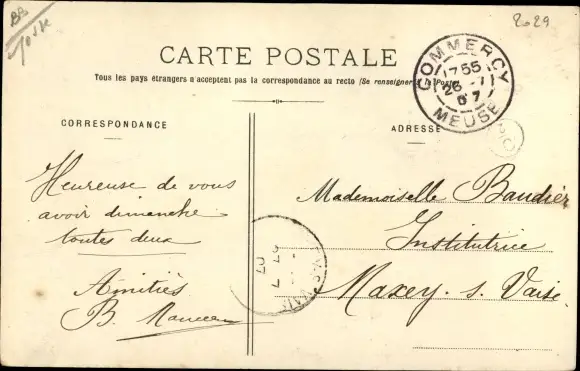 2029
CARTE POSTALE
Tous les pays étrangers n'acceptent pas la correspondance au recto (Se renseigner à la Poste)
COMMERCY
1755
26 - 7
07
MEUSE
CORRESPONDANCE
ADRESSE
Heureuse de vous
avoir dimanche
toutes deux
Amitiés
B.
Mademoiselle Baudier
Institutrice
Maxey. s. Vaise.